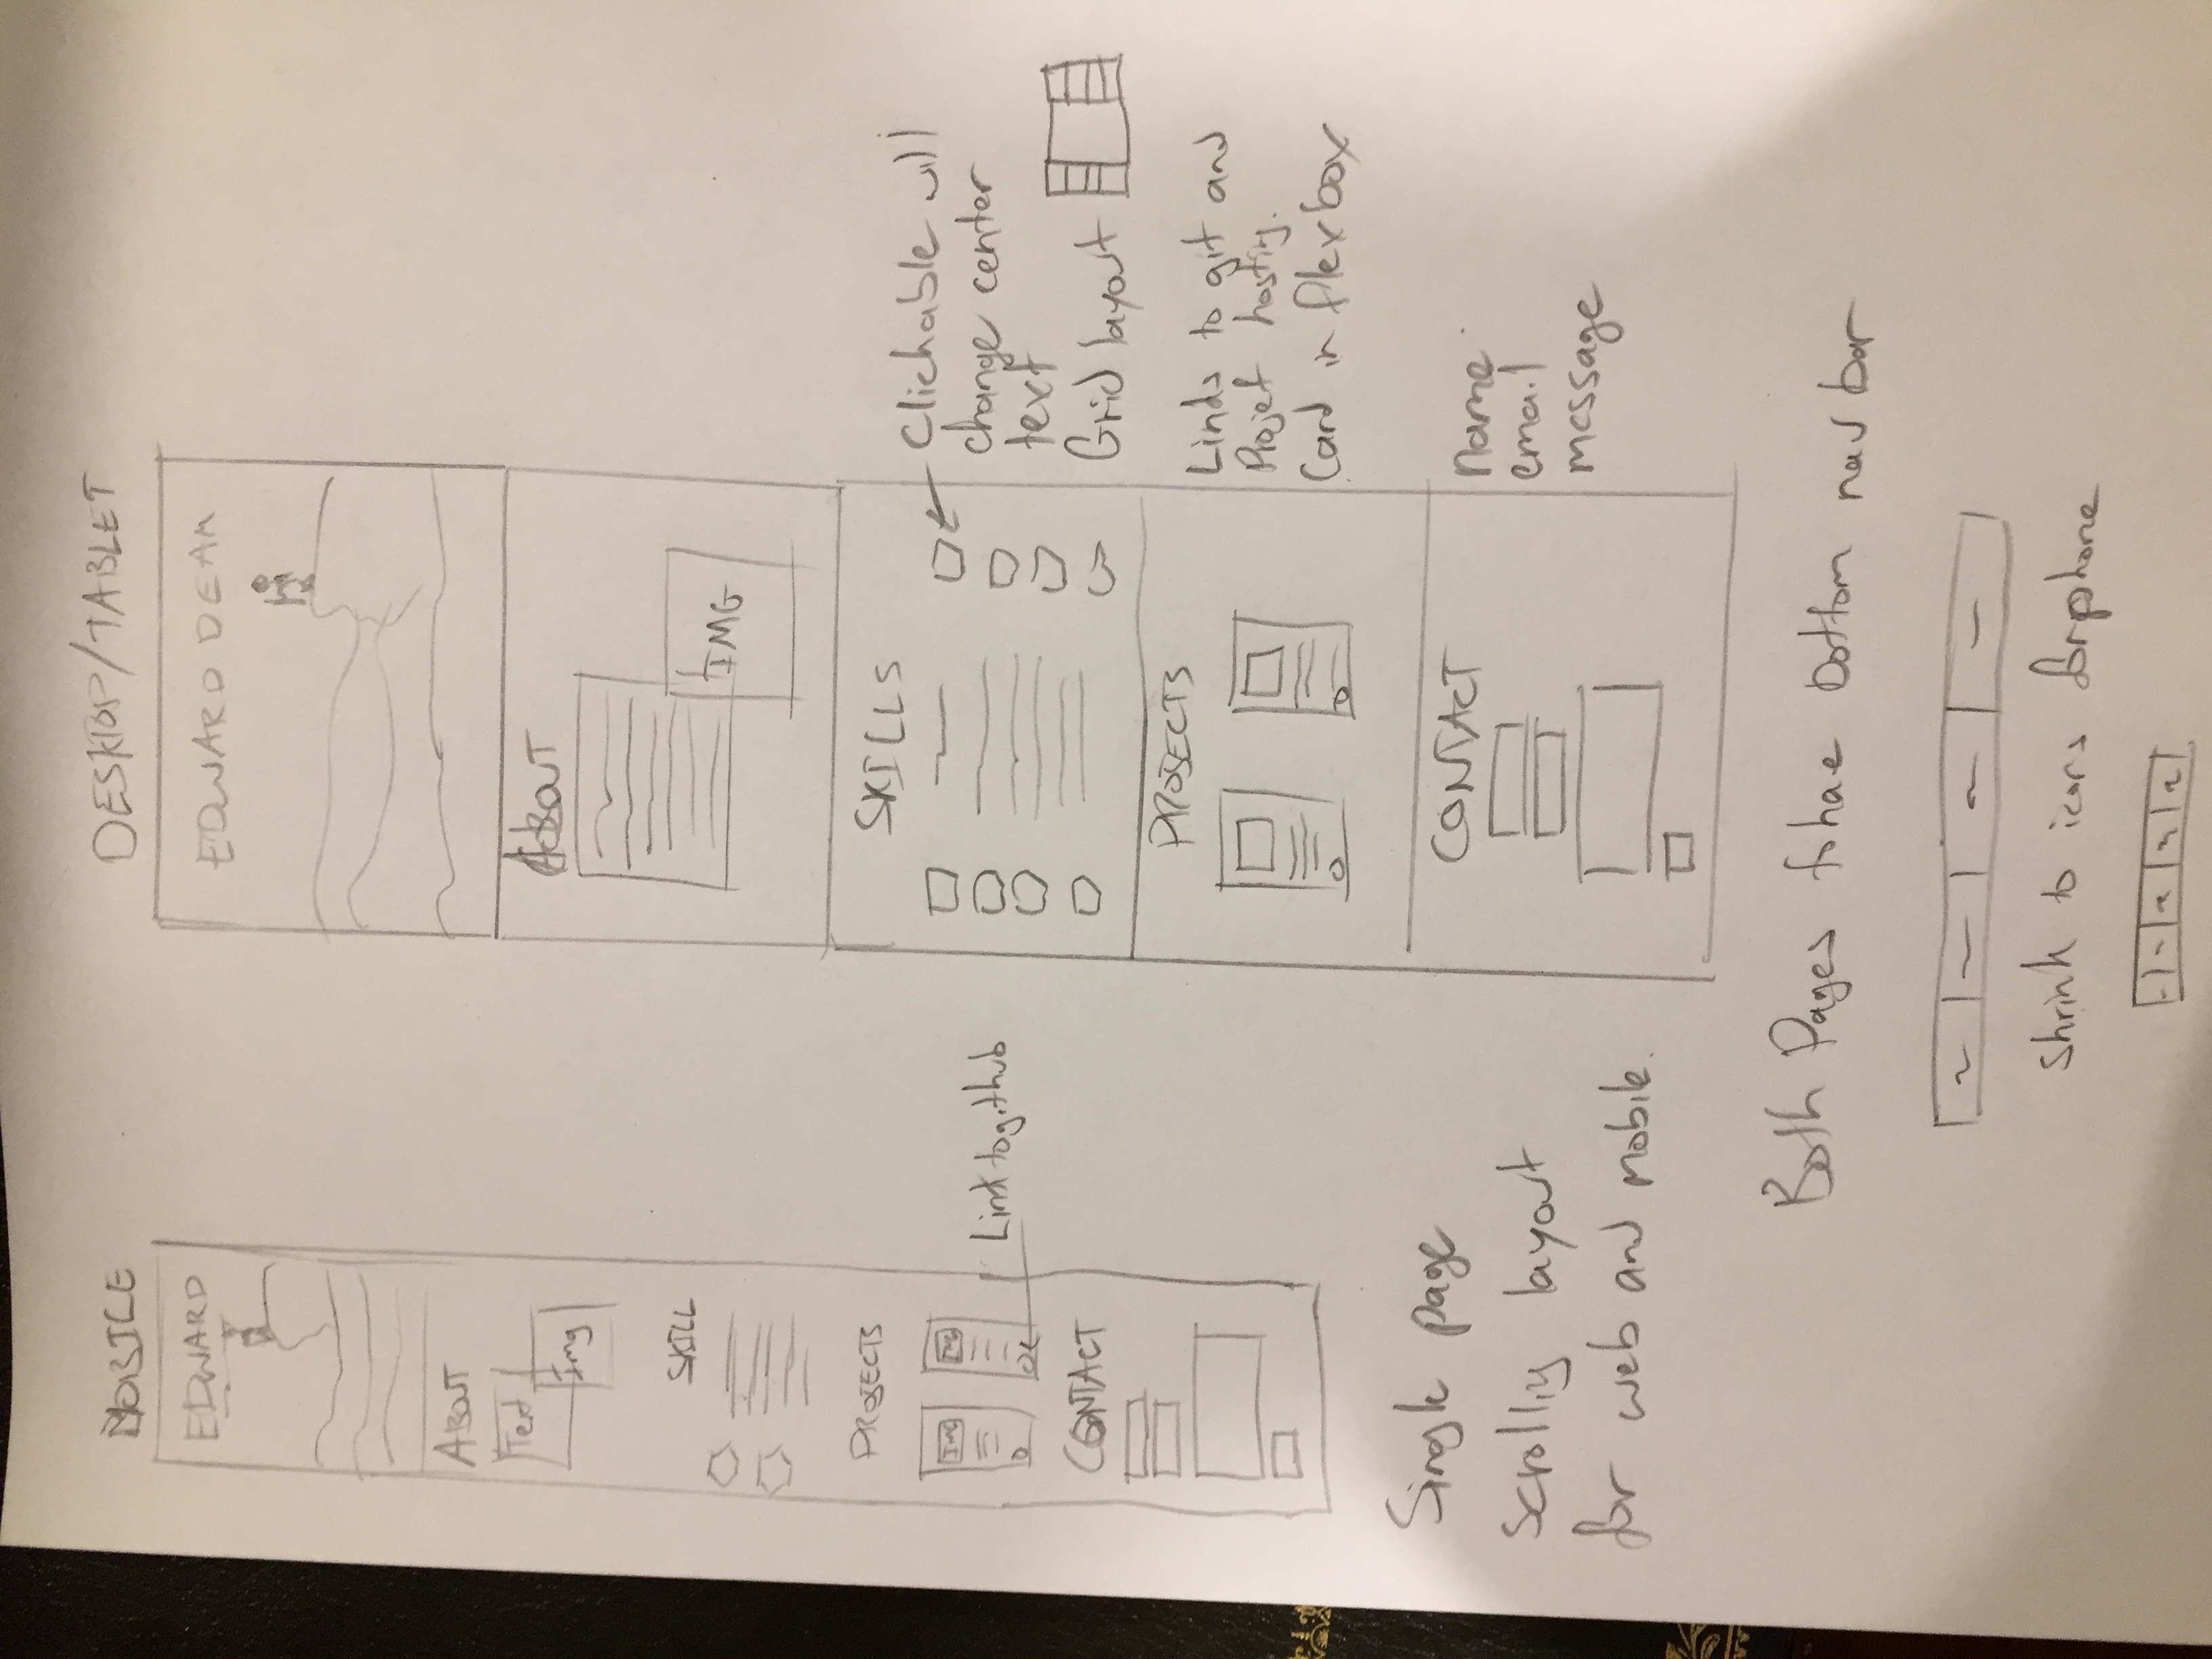 MOBILE
EDWARD
ABOUT
Text
Img
SKILL
PROJECTS
IMG IMG
Link to github
CONTACT
Single page
scrolliy layout
for web and mobile.
DESKTOP/TABLET
EDWARD DEAM
ABOUT
IMG
SKILLS
Clickable will
change center
text
Grid layout
PROJECTS
Links to git and
Projet hosting.
Card in flexbox
CONTACT
name
email
message
Both Pages to hae bottom nav bar
shrink to icons for phone